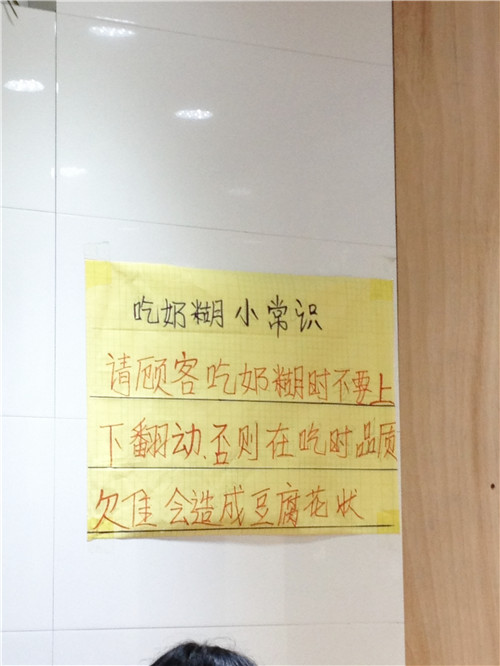 吃奶糊小常识
请顾客吃奶糊时不要上
下翻动、否则在吃时品质
欠佳会造成豆腐花状